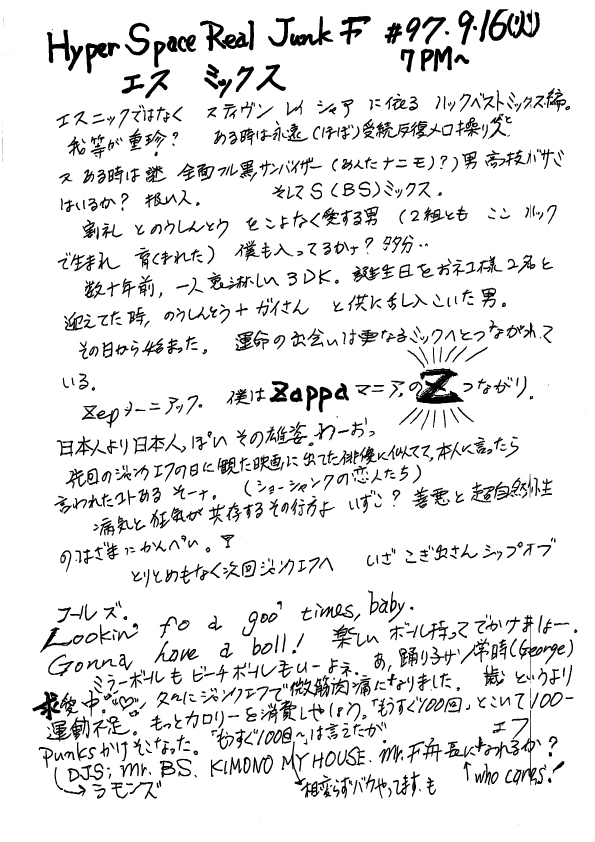 Hyper Space Real Junk F #97. 9.16(火)
エス ミックス 7PM~
エスニックではなく スティヴン レイ シャア に依る ハックベストミックス編。
私等が重珍? ある時は永遠(ほぼ)受続反復メロ操り人と
ス ある時は謎 全面フル黒サンバイザー(あんたナニモ?)男 高枝バサミ
はいるか? 扱い人。 そして S(BS)ミックス。
割礼 とのうしんとう をこよなく愛する男 (2組とも ここ ハック
で生まれ 育くまれた) 僕も入ってるかナ? 多分‥
数十年前, 一人哀しい 3DK。 誕生日をおネコ様 2名と
迎えてた時, のうしんとう+ガイさん と供に乱入こいた男。
その日から始まった。 運命の出会いは更なるミックへとつながれて
いる。
Zepマーニアック。 僕は Zappa マニア。の Z つながり。
日本人より日本人っぽい その雄姿。わーおっ
先回のジャンクエフの日に観た映画に出てた俳優に似てて, 本人に言ったら
言われたコトある そーナ。 (ショーシャンクの恋人たち)
病気と狂気が共存するその行方よ いずこ? 善悪と超自然性
のはざまにかんぺい。
とりとめもなく次回ジャンクエフへ いざ こぎ出さん シップオブ
フールズ。
Lookin' fo a goo' times, baby.
Gonna have a boll! 楽しい ボール持って でかけましょー。
ミラーボールも ビーチボールもいーよネ。 あ, 踊り子サン常時(George)
求愛中 久々にジャンクエフで微筋肉痛になりました。 歳 というより
運動不足。 もっとカロリーを消費しやしょう。「もうすぐ100回」とこいて100-
Punksかけそこなった。 「もうすぐ100日~」は言えたが エフ
DJS; Mr. BS. KIMONO MY HOUSE. Mr. F舟長になれるか?
→ラモンズ 相変らずバクやってます。も who cares!